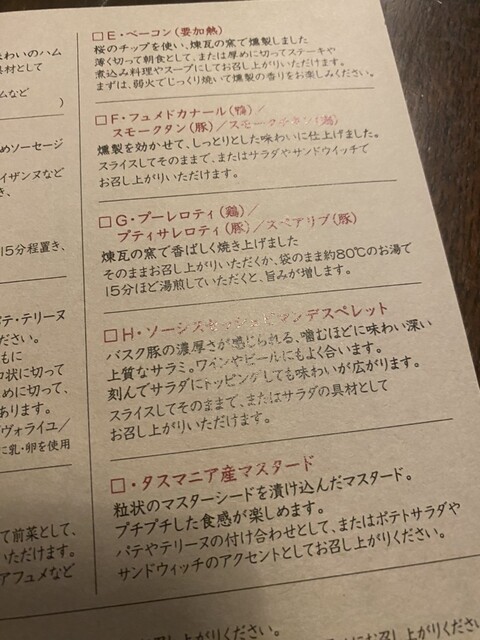 わいのハム
具材として
ムなど
)
めソーセージ
イザンヌなど
き、
15分程置き、
パテ・テリーヌ
ださい。
もに
コ状に切って
めに切って、
あります。
ヴォライユ/
に乳・卵を使用
て前菜として、
いただけます。
アフュメなど
□E・ベーコン(要加熱)
桜のチップを使い、煉瓦の窯で燻製しました
薄く切って朝食として、または厚めに切ってステーキや
煮込み料理やスープにしてお召し上がりいただけます。
まずは、弱火でじっくり焼いて燻製の香りをお楽しみください。
□F・フュメドカナール(鴨)/
スモークタン(豚)/スモークチキン(鶏)
燻製を効かせて、しっとりとした味わいに仕上げました。
スライスしてそのまま、またはサラダやサンドウイッチで
お召し上がりいただけます。
□G・プーレロティ(鶏)/
プティサレロティ(豚)/スペアリブ(豚)
煉瓦の窯で香ばしく焼き上げました
そのままお召し上がりいただくか、袋のまま約80℃のお湯で
15分ほど湯煎していただくと、旨みが増します。
□H・ソーシスセッシュピマンデスペレット
バスク豚の濃厚さが感じられる、噛むほどに味わい深い
上質なサラミ。ワインやビールにもよく合います。
刻んでサラダにトッピングしても味わいが広がります。
スライスしてそのままで、またはサラダの具材として
お召し上がりいただけます。
□・タスマニア産マスタード
粒状のマスターシードを漬け込んだマスタード。
プチプチした食感が楽しめます。
パテやテリーヌの付け合わせとして、またはポテトサラダや
サンドウィッチのアクセントとしてお召し上がりください。
上がりください。
にお召し上がりください。